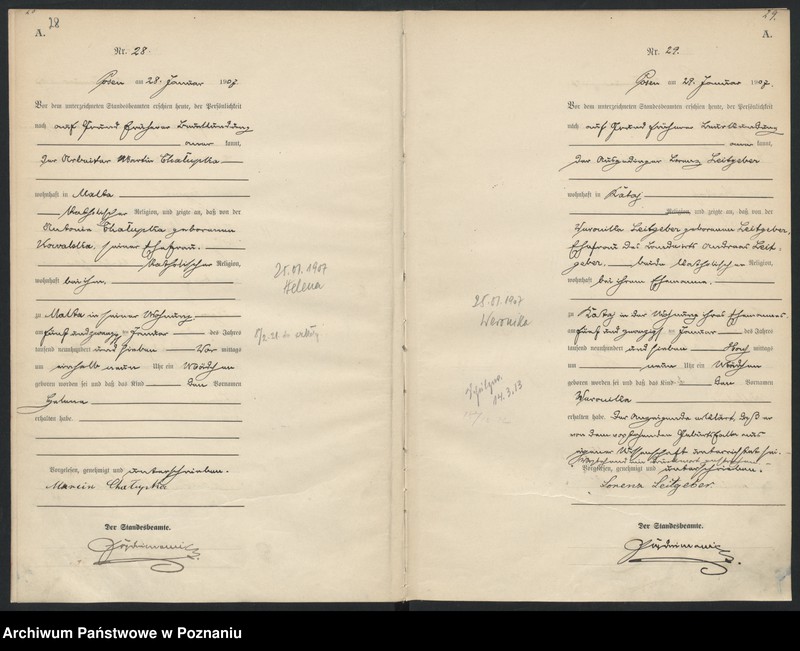 28
A.
Nr. 28.
Posen am 28. Januar 1907
Vor dem unterzeichneten Standesbeamten erschien heute, der Persönlichkeit
nach auf Grund früherer Beurkundung
aner kannt,
der Arbeiter Martin Chałupka
wohnhaft in Malta
katholischer Religion, und zeigte an, daß von der
Antonie Chałupka geborenen
Kowalska, seiner Ehefrau,
katholischer Religion,
wohnhaft bei ihm,
zu Malta in seiner Wohnung
am fünf und zwanzigsten Januar des Jahres
tausend neunhundert und sieben Vor mittags
um einhalb neun Uhr ein Mädchen
geboren worden sei und daß das Kind den Vornamen
Helene
erhalten habe.
Vorgelesen, genehmigt und unterschrieben.
Marcin Chałupka
Der Standesbeamte.
25.01.1907
Helena
29.
A.
Nr. 29.
Posen am 29. Januar 1907.
Vor dem unterzeichneten Standesbeamten erschien heute, der Persönlichkeit
nach auf Grund früherer Beurkundung
aner kannt,
der Ausgedinger Lorenz Leitgeber
wohnhaft in Rataj
Religion, und zeigte an, daß von der
Veronika Leitgeber geborenen Leitgeber,
Ehefrau des Landwirts Andreas Leit-
geber, beide katholischer Religion,
wohnhaft bei ihrem Ehemanne,
zu Rataj in der Wohnung ihres Ehemannes
am fünf und zwanzigsten Januar des Jahres
tausend neunhundert und sieben Nach mittags
um neun Uhr ein Mädchen
geboren worden sei und daß das Kind den Vornamen
Veronika
erhalten habe. Der Anzeigende erklärt, daß er
von dem vorstehenden Geburtsfalle aus
eigener Wissenschaft unterrichtet sei.
Vorstehend ein Druckwort gestrichen.
Vorgelesen, genehmigt und unterschrieben.
Lorenz Leitgeber
Der Standesbeamte.
25.01.1907
Weronika
14.3.13
Archiwum Państwowe w Poznaniu